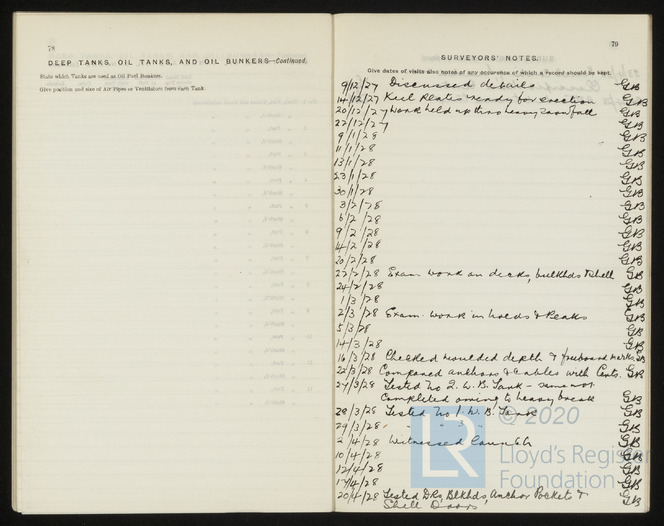 78
DEEP TANKS, OIL TANKS, AND OIL BUNKERS—Continued.
State which Tanks are used as Oil Fuel Bunkers.
Give position and size of Air Pipes or Ventilators from each Tank:
79
SURVEYORS' NOTES.
Give dates of visits also notes of any occurence of which a record should be kept.
9/12/27 Discussed details GB
14/12/27 Keel Plates ready for erection GB
20/12/27 Work held up thro heavy snowfall GB
22/12/27 GB
9/1/28 GB
11/1/28 GB
13/1/28 GB
23/1/28 GB
30/1/28 GB
3/2/28 GB
6/2/28 GB
9/2/28 GB
14/2/28 GB
20/2/28 GB
22/2/28 Exam work on decks, bulkhds & shell GB
24/2/28 GB
1/3/28 GB
2/3/28 Exam. work in holds & Peaks GB
5/3/28 GB
14/3/28 GB
16/3/28 Checked moulded depth & freeboard marks GB
22/3/28 Compared anchors & cables with Certs. GB
27/3/28 Tested No 2. W. B. Tank –
completed owing to heavy GB
28/3/28 Tested No 1. W. B. Tank GB
29/3/28 " " 3 " GB
2/4/28 Witnessed Launch GB
10/4/28 GB
12/4/28 GB
17/4/28 GB
20/4/28 Tested Blkhds, Anchor Pocket & GB
Shell Doors
© 2020
LR
Lloyd's Register
Foundation